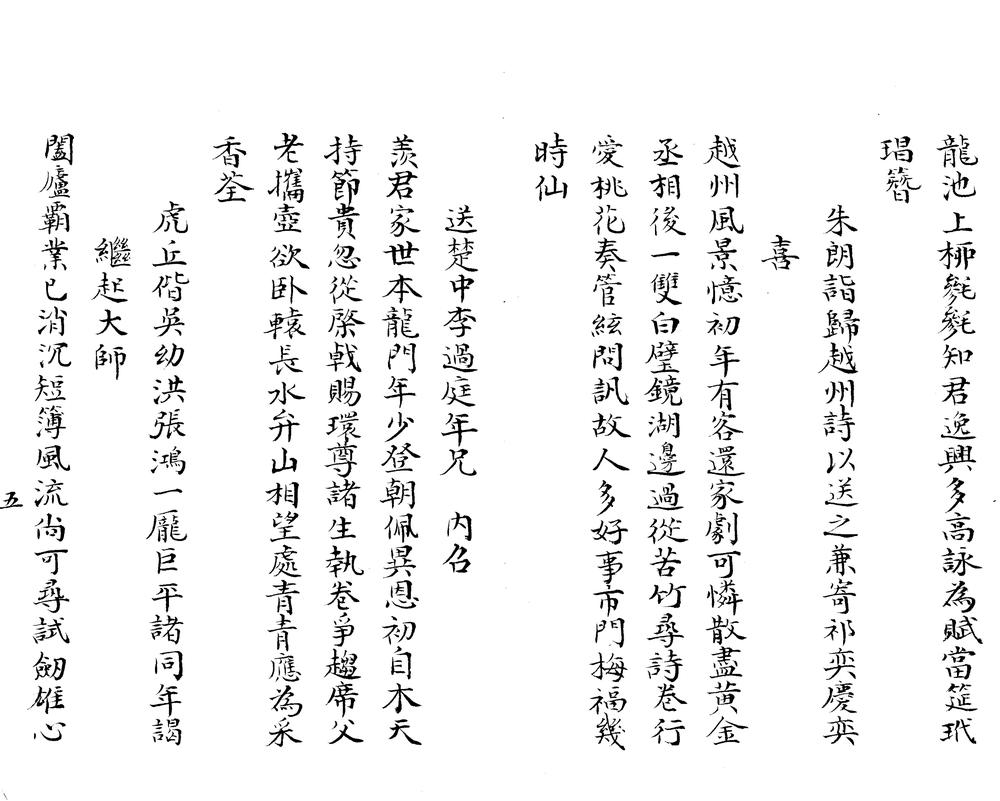 龍池上桺毿毿知君逸興多高詠為賦當筵玳
瑁簪
朱朗詣歸越州詩以送之兼寄祁奕慶奕
喜
越州風景憶初年有客還家劇可憐散盡黄金
丞相後一雙白璧鏡湖邊過從苦竹尋詩卷行
愛桃花奏管絃問訊故人多好事市門梅福幾
時仙
送楚中李過庭年兄　内召
羨君家世本龍門年少登朝佩異恩初自木天
持節貴忽從棨戟賜環尊諸生執卷爭趨席父
老攜壺欲卧轅長水弁山相望處青青應為采
香荃
虎丘偕吳幼洪張鴻一龐巨平諸同年謁
繼起大師
闔廬霸業已消沉短簿風流尚可尋試劒雄心
五